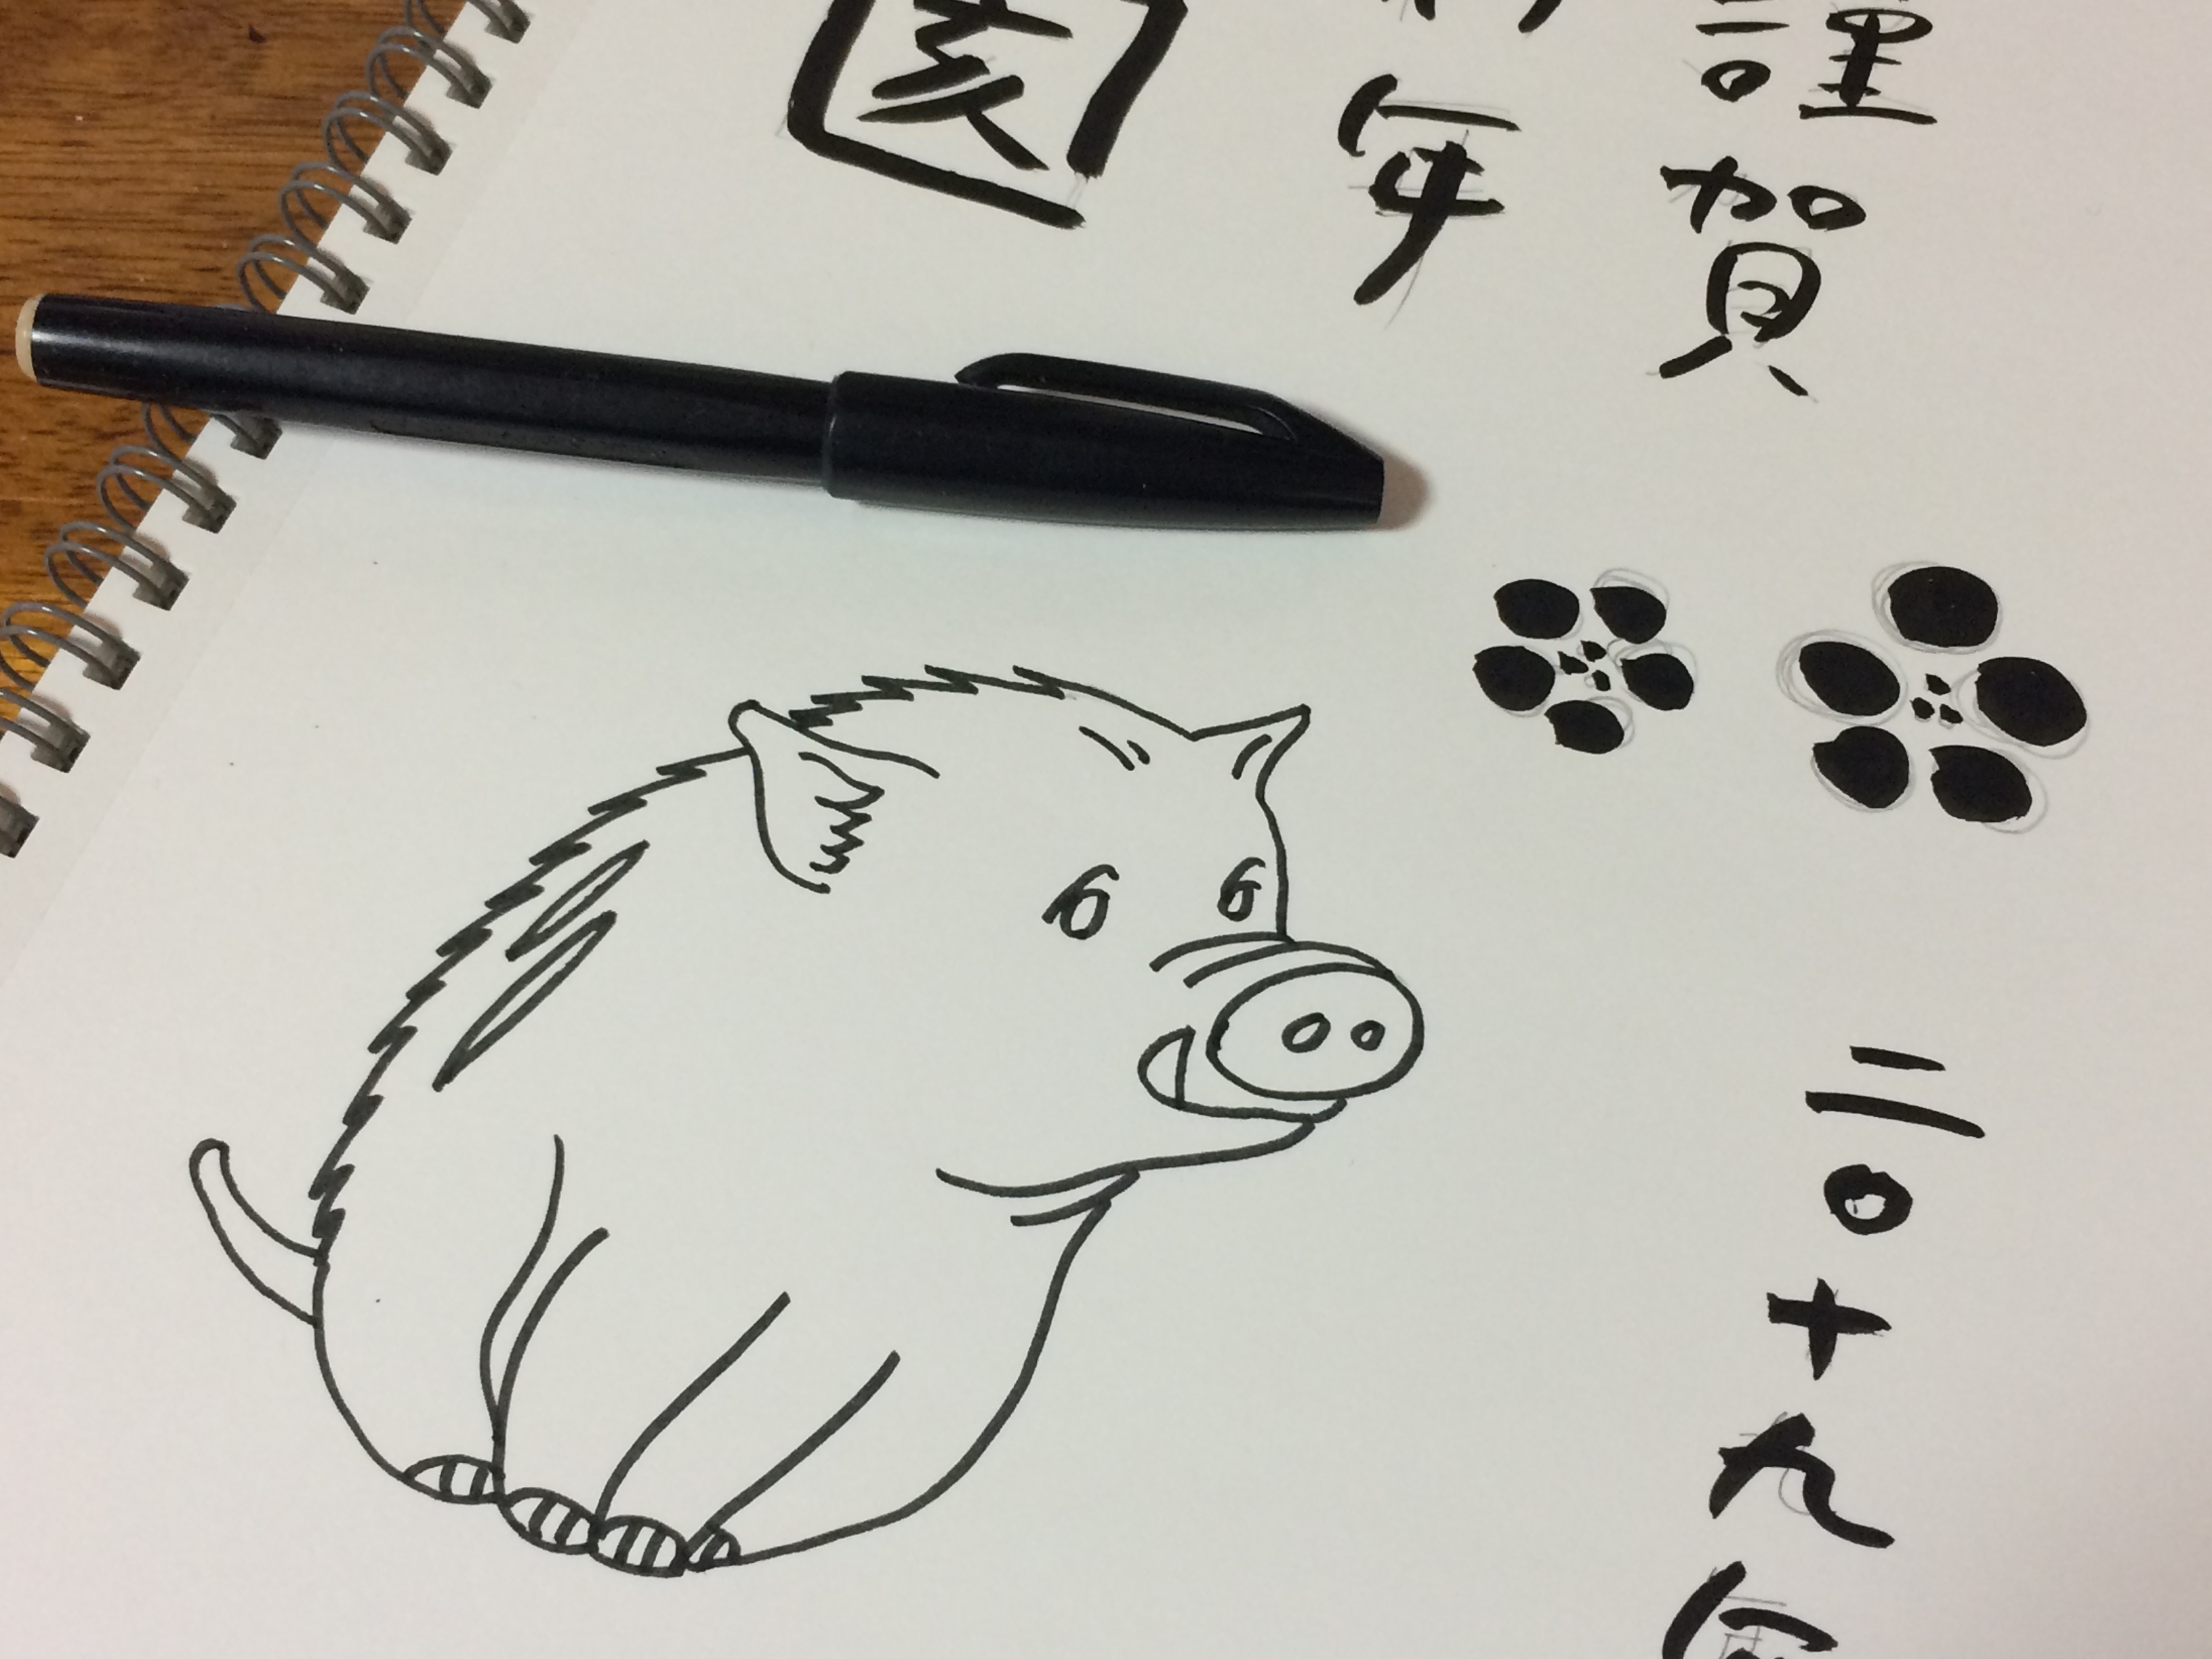 謹賀
年
亥
二〇十九年